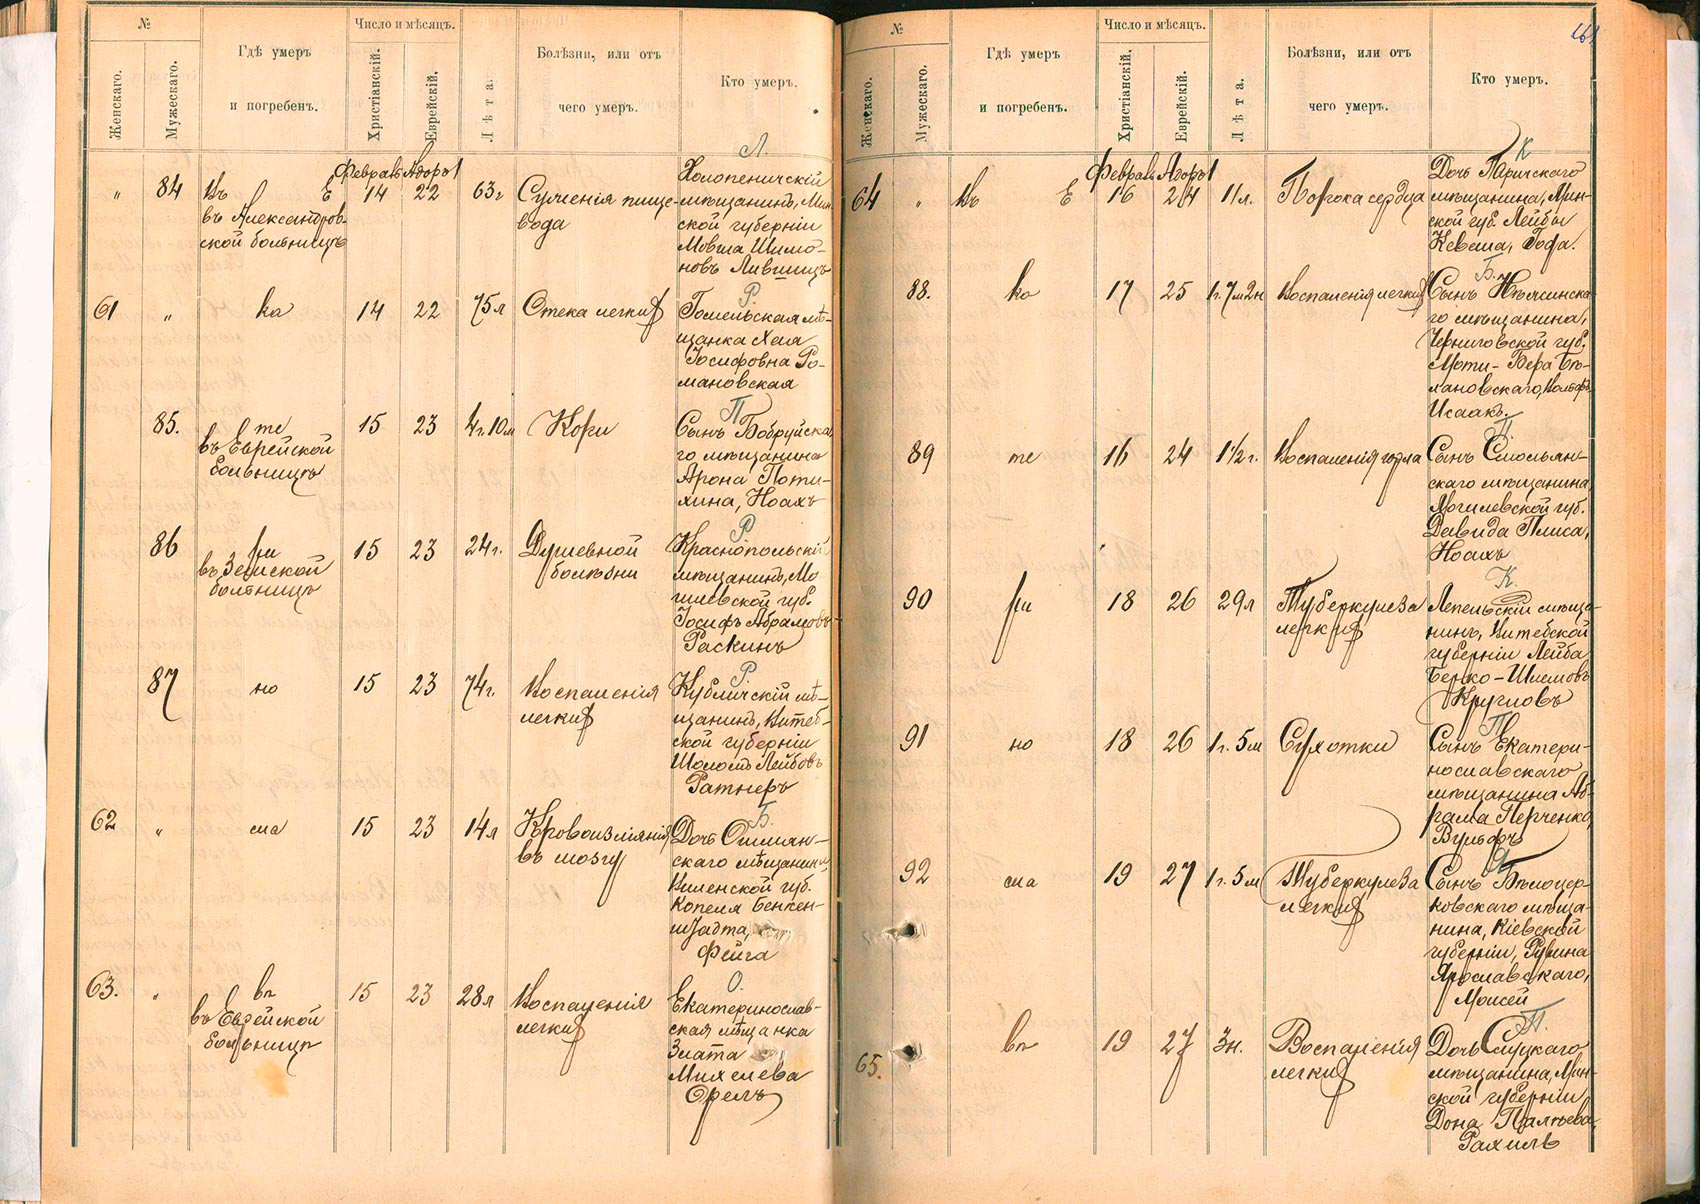 №
Женскаго.
Мужескаго.
Гдѣ умеръ
и погребенъ.
Число и мѣсяцъ.
Христіанскій.
Еврейскій.
Лѣта.
Болѣзни, или отъ
чего умеръ.
Кто умеръ.
Л.
Февраль Адоръ 1
„ 84 Въ Е 14 22 63 г Суженія пище-
вода
въ Александров-
ской больницѣ
Холопеничскій
мѣщанинъ, Мин-
ской губерніи
Мовша Шимо-
новъ Лившицъ
Р.
61 „ ка 14 22 75 л Отека легкихъ
Гомельская мѣ-
щанка Хая
Іосифовна Ро-
мановская
П
85. те 15 23 4 г. 10 м Кори
въ Еврейской
больницѣ
Сынъ Бобруйска-
го мѣщанина
Арона Поти-
хина, Ноахъ
Р.
86 ри 15 23 24 г. Душевной
болѣзни
въ Земской
больницѣ
Краснопольскій
мѣщанинъ, Мо
гилевской губ.
Іосифъ Абрамовъ
Раскинъ
Р.
87 но 15 23 74 г. Воспаленія
легкихъ
Кубличскій мѣ-
щанинъ, Витеб-
ской губерніи
Шоломъ Лейбовъ
Ратнеръ
Б.
62 „ сла 15 23 14 л Кровоизліянія
въ мозгу
Дочь Ошмян-
скаго мѣщанина,
Виленской губ.
Копеля Бенкен-
штадта,
Фейга
О.
63. „ въ 15 23 28 л Воспаленія
легкихъ
въ Еврейской
больницѣ
Екатеринослав-
ская мѣщанка
Злата
Михелева
Орелъ
161
№
Женскаго.
Мужескаго.
Гдѣ умеръ
и погребенъ.
Число и мѣсяцъ.
Христіанскій.
Еврейскій.
Лѣта.
Болѣзни, или отъ
чего умеръ.
Кто умеръ.
К
Февраль Адоръ 1
64 „ Въ Е 16 24 11 л. Порока сердца
Дочь Паричского
мѣщанина, Мин-
ской губ. Лейбы
Кевеша, Гофа.
Б.
88. ка 17 25 1 г. 7 м 2 н Воспаленія легкихъ
Сынъ Нѣжинска-
го мѣщанина,
Черниговской губ.
Моти-Бера Бѣ-
лановскаго, Вольфъ
Исаакъ.
П.
89 те 16 24 1 1/2 г. Воспаленія горла
Сынъ Смольян-
скаго мѣщанина,
Могилевской губ.
Давида Плиса,
Ноахъ
К.
90 ри 18 26 29 л Туберкулеза
легкихъ
Лепельскій мѣща-
нинъ, Витебской
губерніи Лейба
Берко-Шлемовъ
Кругловъ
П
91 но 18 26 1 г. 5 м Сухотки
Сынъ Екатери-
нославскаго
мѣщанина Аб-
рама Перченко,
Вульфъ
Я
92 сла 19 27 1 г. 5 м Туберкулеза
легкихъ
Сынъ Бѣлоцер-
ковскаго мѣща-
нина, Кіевской
губерніи, Рувина
Ярославскаго,
Моисей
П.
65. въ 19 27 3 н. Воспаленія
легкихъ
Дочь Слуцкаго
мѣщанина, Мин-
ской губерніи
Дона Палѣева
Рахиль